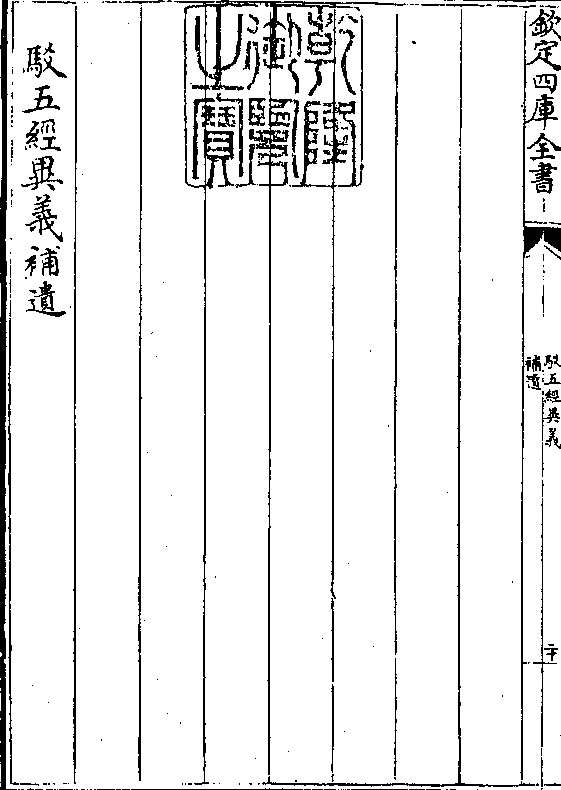 欽定四庫全書
駁五經異義
補遺
二十
乾隆
御覽
之寶
駁五經異義補遺